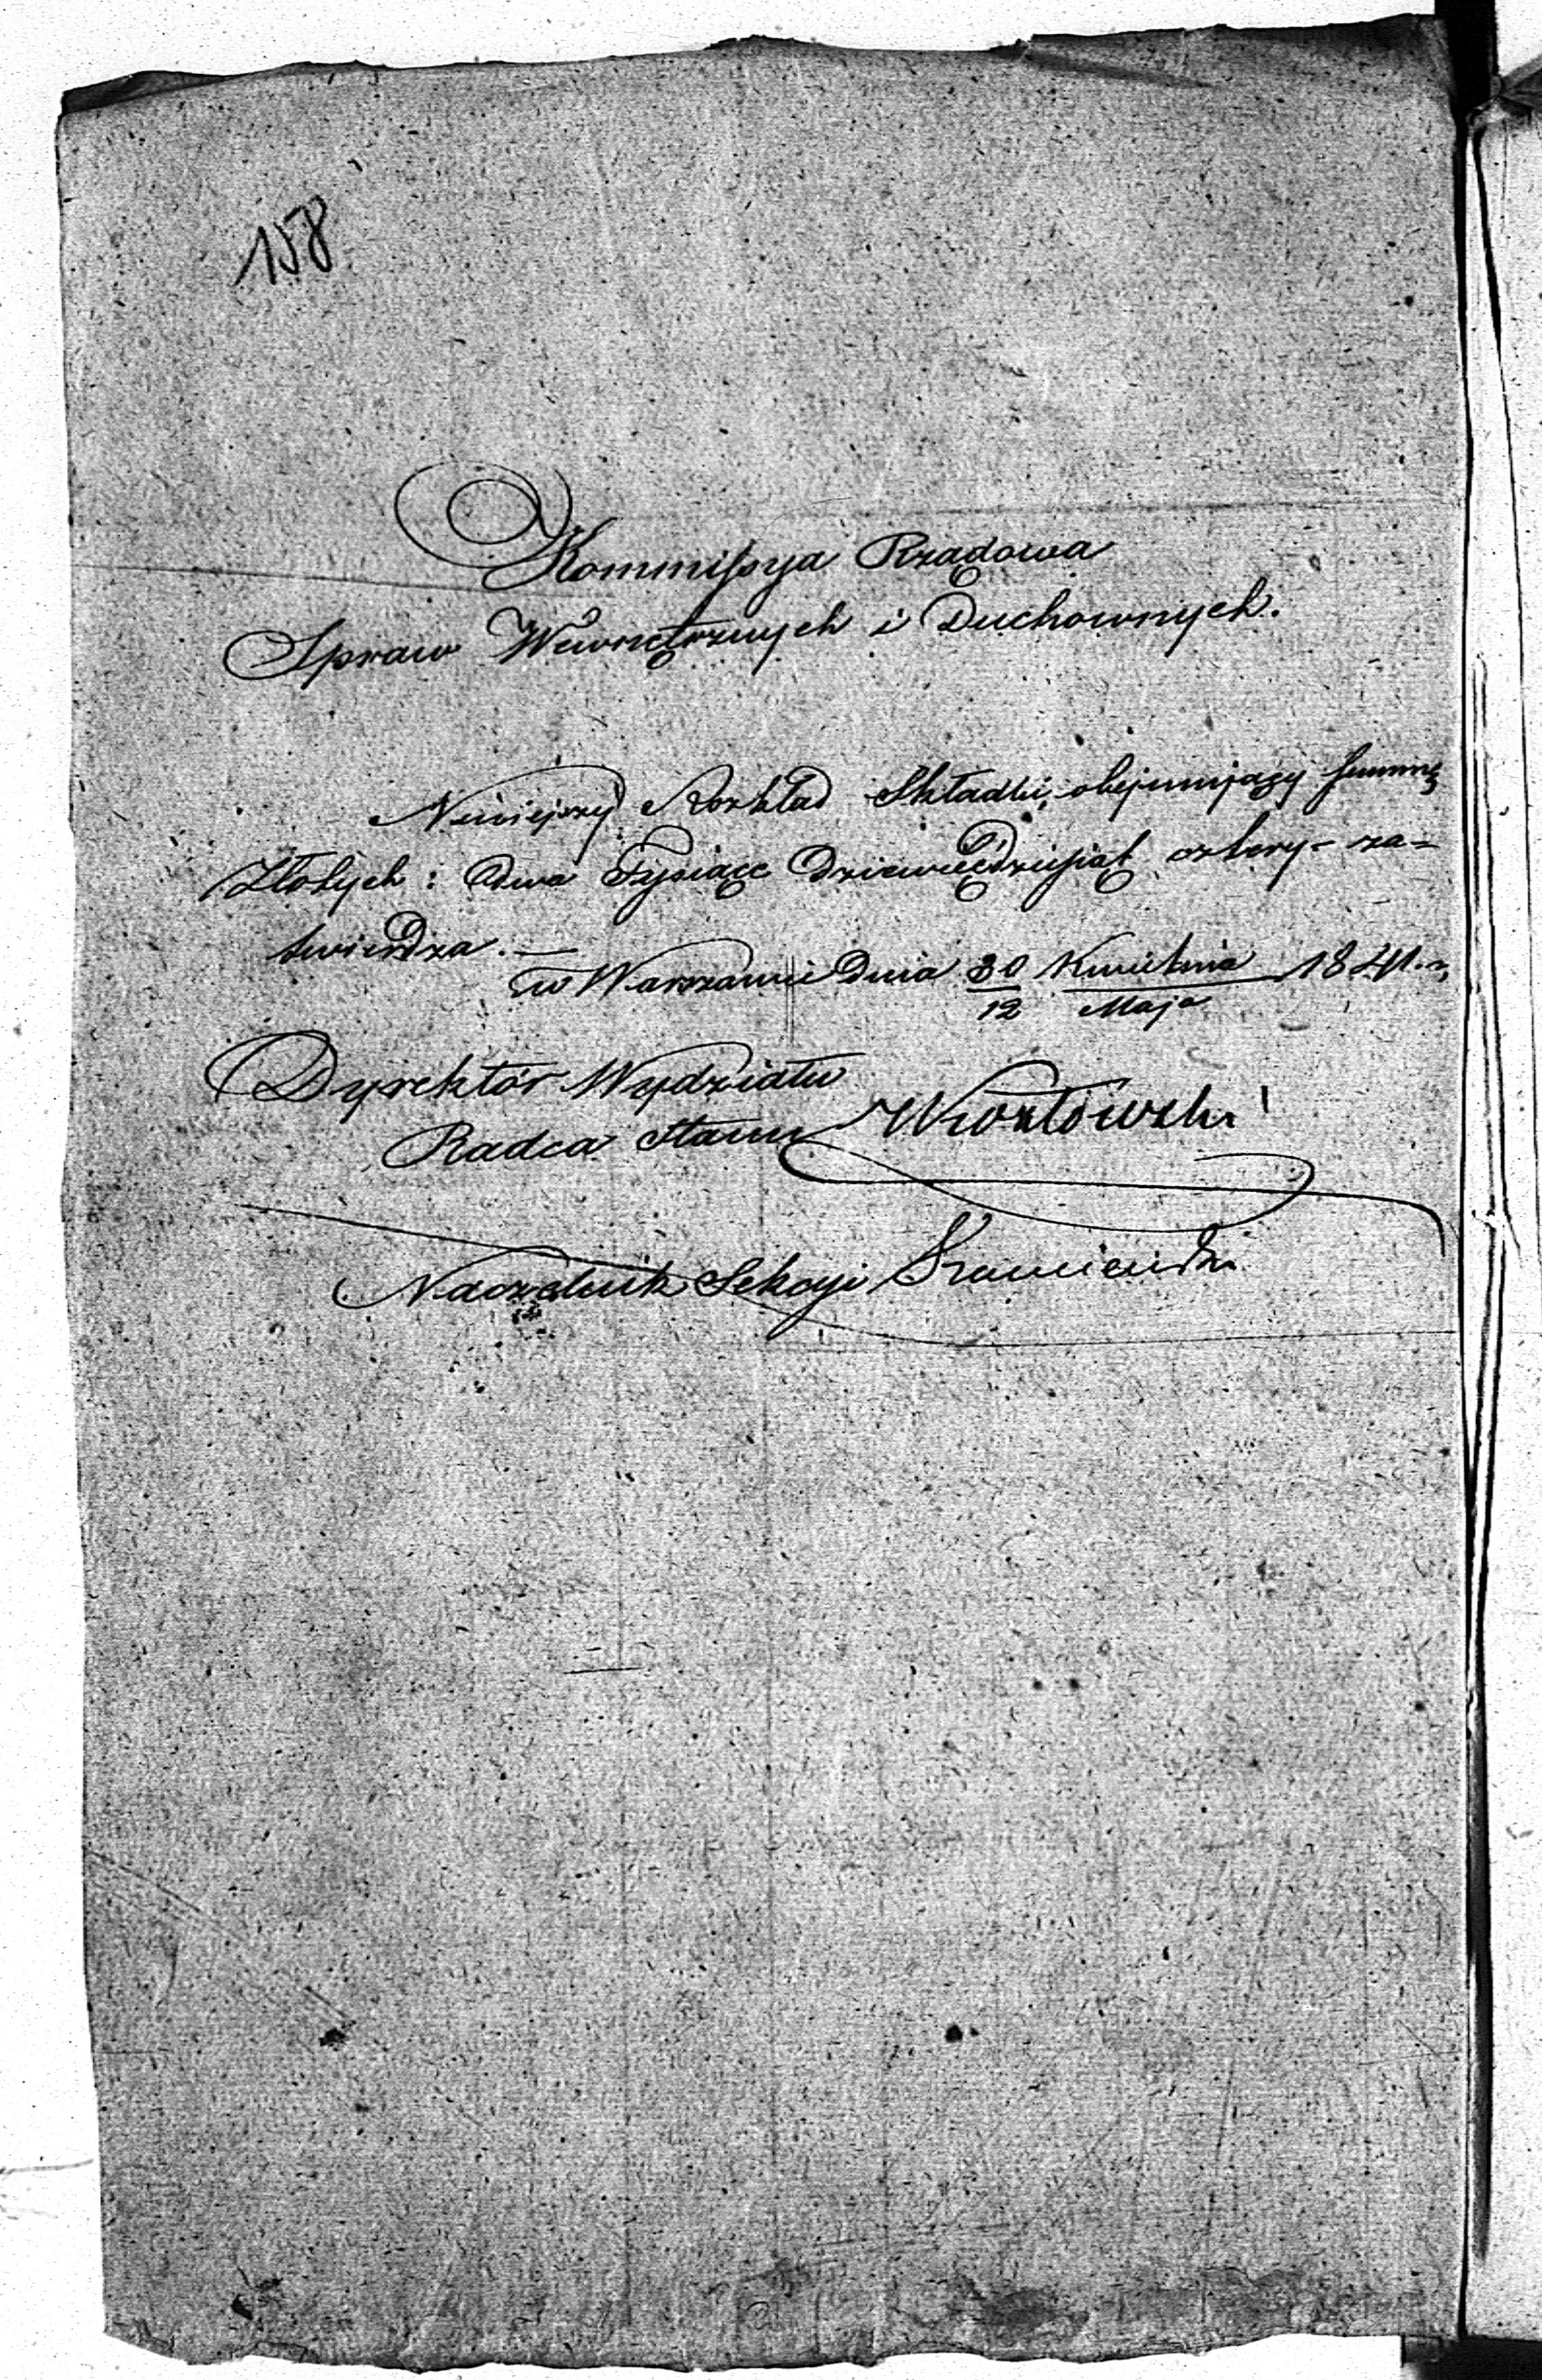 158
Kommissya Rządowa
Spraw Wewnętrznych i Duchownych.
Niniejszy Rozkład Składki, obejmujący summę
Złotych: Dwa Tysiące Dziewięćdziesiąt cztery - za=
twierdza. —
w Warszawie Dnia 30/12 Kwietnia/Maja 1841. r.
Dyrektór Wydziału
Radca Stanu
Naczelnik Sekcyi